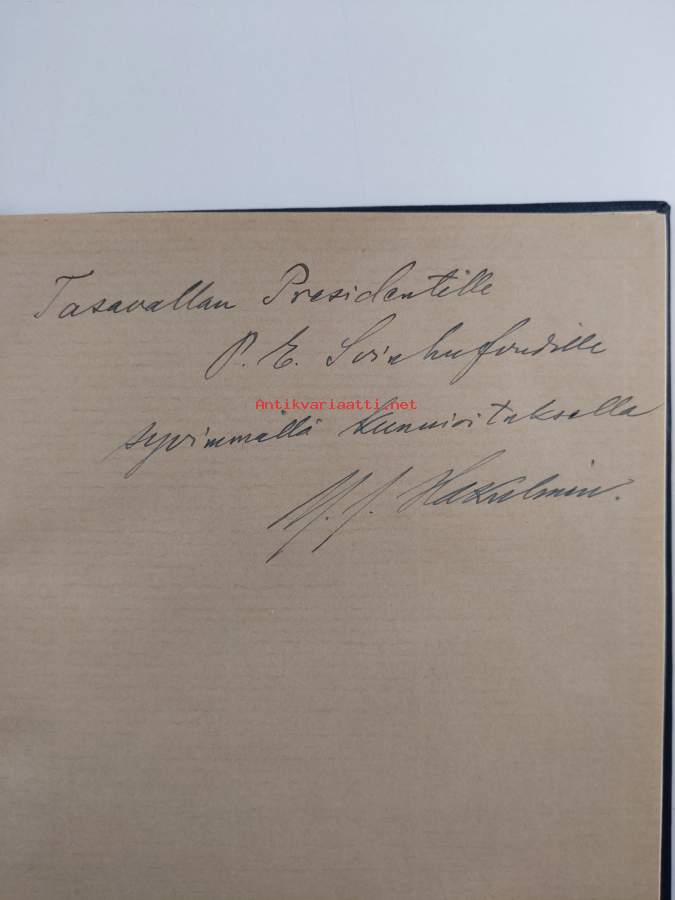 Tasavallan Presidentille
P. E. Svinhufvudille
Antikvariaatti.net
syvimmällä kunnioituksella